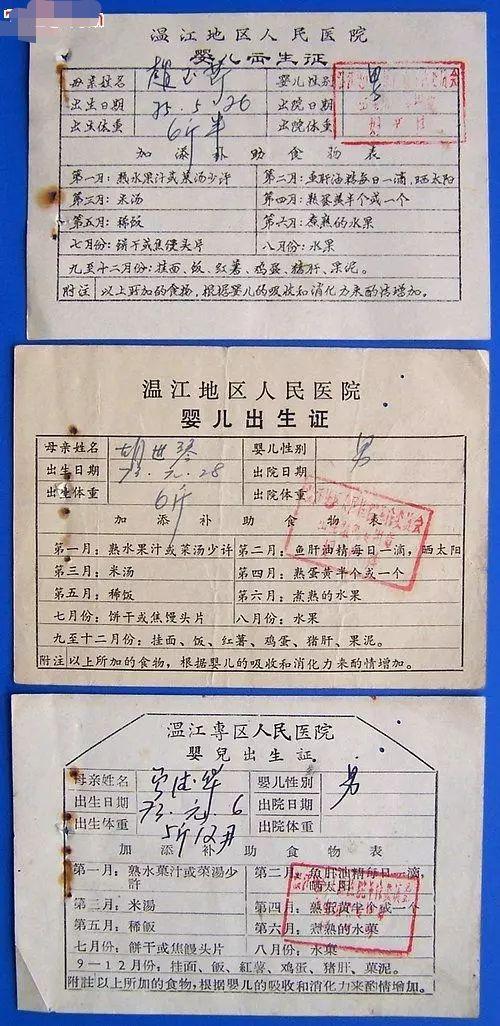 温江地区人民医院
婴儿出生证
母亲姓名 婴儿性别 男
出生日期 75.5.26 出院日期
出生体重 6斤半 出院体重
加添补助食物表
第一月：熟水果汁或菜汤少许 第二月：鱼肝油精每日一滴，晒太阳
第三月：米汤 第四月：熟蛋黄半个或一个
第五月：稀饭 第六月：煮熟的水果
七月份：饼干或焦馒头片 八月份：水果
九至十二月份：挂面、饭、红薯、鸡蛋、猪肝、果泥。
附注 以上所加的食物，根据婴儿的吸收和消化力来酌情增加。
温江地区人民医院
婴儿出生证
母亲姓名 胡世琴 婴儿性别 男
出生日期 73.元.28 出院日期
出生体重 6斤 出院体重
加添补助食物表
第一月：熟水果汁或菜汤少许 第二月：鱼肝油精每日一滴，晒太阳
第三月：米汤 第四月：熟蛋黄半个或一个
第五月：稀饭 第六月：煮熟的水果
七月份：饼干或焦馒头片 八月份：水果
九至十二月份：挂面、饭、红薯、鸡蛋、猪肝、果泥。
附注以上所加的食物，根据婴儿的吸收和消化力来酌情增加。
温江専区人民医院
嬰兒出生証
母亲姓名 婴儿性別 男
出生日期 73.元.6 出院日期
出生体重 5斤12两 出院体重
加添补助食物表
第一月：熟水菓汁或菜湯少 第二月：魚肝油精每日一滴，
許 晒太阳
第三月：米湯 第四月：熟蛋黄半个或一个
第五月：稀飯 第六月：煮熟的水菓
七月份：餅干或焦馒头片 八月份：水菓
9—12月份：挂面、飯、紅薯、鸡蛋、猪肝、菓泥。
附注以上所加的食物，根据婴儿的吸收和消化力来酌情增加。